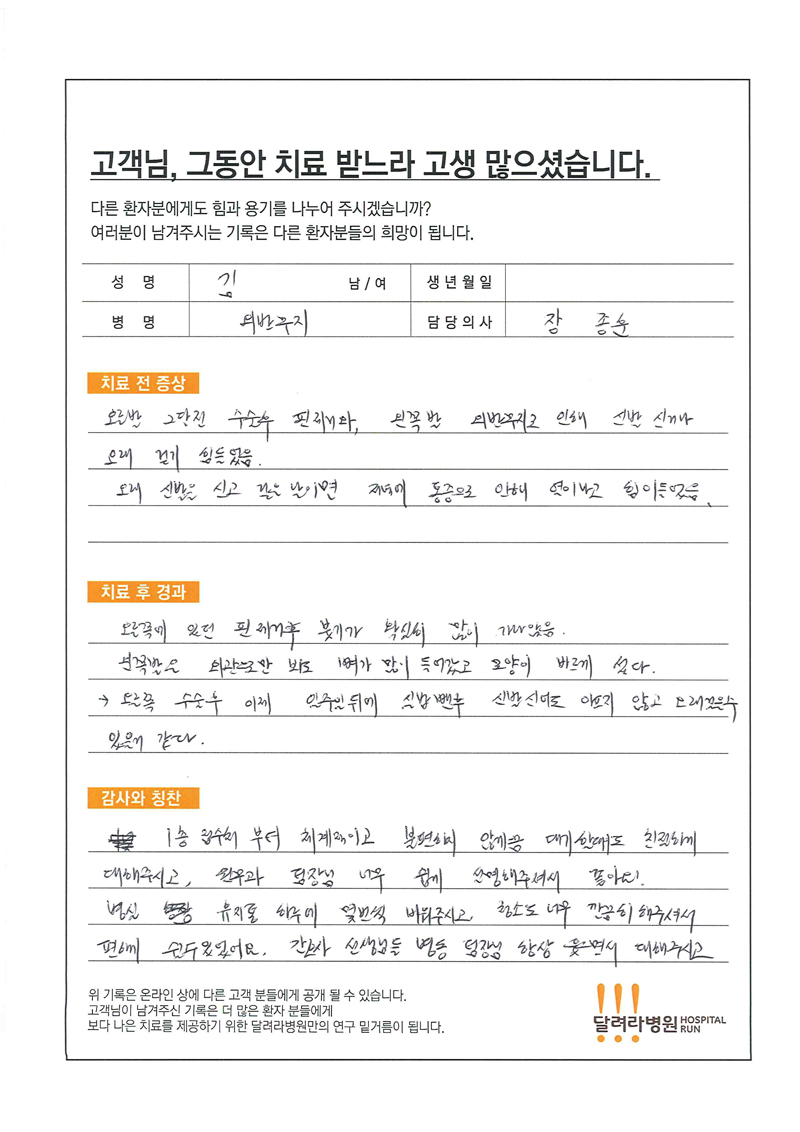 고객님, 그동안 치료 받느라 고생 많으셨습니다.
다른 환자분에게도 힘과 용기를 나누어 주시겠습니까?
여러분이 남겨주시는 기록은 다른 환자분들의 희망이 됩니다.
성 명 김 남 / 여 생년월일
병 명 무지 담당의사 장 종훈
치료 전 증상
오른발 수술후 핀제거와, 왼쪽발 인해 신발 신거나
오래 걷기 힘들었음.
오래 신발을 신고 걸은 날이면 저녁에 통증으로 인해 열이나고 힘이들었음.
치료 후 경과
오른쪽에 있던 핀제거후 붓기가 확실히 많이 가라앉음.
왼쪽발은 외관으로만 봐도 뼈가 많이 들어갔고 모양이 바르게 섰다.
→ 오른쪽 수술후 이제 일주일뒤에 실밥뺀후 신발신어도 아프지 않고 오래걸을수
있을거 같다.
감사와 칭찬
1층 접수처 부터 체계적이고 불편하지 않게끔 대기할때도 친절하게
대해주시고, 원무과 팀장님 너무 쉽게 설명해주셔서 좋아요!
병실 유지를 하루에 몇번씩 봐주시고, 청소도 너무 깐끔히 해주셔서
편하게 쉴수있었어요. 간호사 선생님들 병동 팀장님 항상 웃으면서 대해주시고
위 기록은 온라인 상에 다른 고객 분들에게 공개 될 수 있습니다.
고객님이 남겨주신 기록은 더 많은 환자 분들에게
보다 나은 치료를 제공하기 위한 달려라병원만의 연구 밑거름이 됩니다.
달려라병원 HOSPITAL RUN